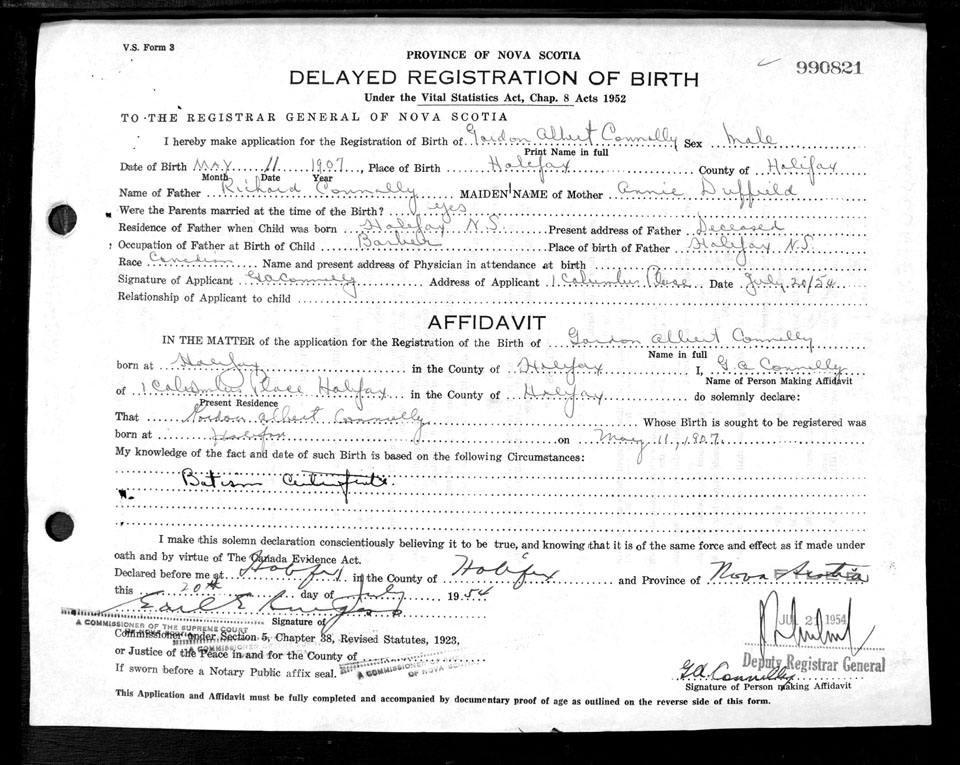 V.S. Form 3
PROVINCE OF NOVA SCOTIA
990821
DELAYED REGISTRATION OF BIRTH
Under the Vital Statistics Act, Chap. 8 Acts 1952
TO THE REGISTRAR GENERAL OF NOVA SCOTIA
I hereby make application for the Registration of Birth of Gordon Albert Connelly Sex Male
Print Name in full
Date of Birth MAY 11 1907, Place of Birth Halifax County of Halifax
Month Date Year
Name of Father Richard Connally MAIDEN NAME of Mother Annie Duffield
Were the Parents married at the time of the Birth? yes
Residence of Father when Child was born Halifax N.S. Present address of Father Deceased
Occupation of Father at Birth of Child Barber Place of birth of Father Halifax N.S.
Race Canadian Name and present address of Physician in attendance at birth
Signature of Applicant G A Connelly Address of Applicant 1 Columbus Place Date July 20/54
Relationship of Applicant to child
AFFIDAVIT
IN THE MATTER of the application for the Registration of the Birth of Gordon Albert Connelly
Name in full
born at Halifax in the County of Halifax I, G A Connelly
Name of Person Making Affidavit
of 1 Columbus Place Halifax in the County of Halifax do solemnly declare:
Present Residence
That Gordon Albert Connelly Whose Birth is sought to be registered was
born at Halifax on May 11, 1907.
My knowledge of the fact and date of such Birth is based on the following Circumstances:
Batism
I make this solemn declaration conscientiously believing it to be true, and knowing that it is of the same force and effect as if made under
oath and by virtue of The Canada Evidence Act.
Declared before me at Halifax in the County of Halifax and Province of Nova Scotia
this 20th day of July 1954
JUL 21 1954
Signature of
A COMMISSIONER OF THE SUPREME COURT
Commissioner under Section 5, Chapter 38, Revised Statutes, 1923,
or Justice of the Peace in and for the County of
A COMMISSIONER OF
OF NOVA SCOTIA
Deputy Registrar General
If sworn before a Notary Public affix seal.
G.A. Connelly
Signature of Person making Affidavit
This Application and Affidavit must be fully completed and accompanied by documentary proof of age as outlined on the reverse side of this form.